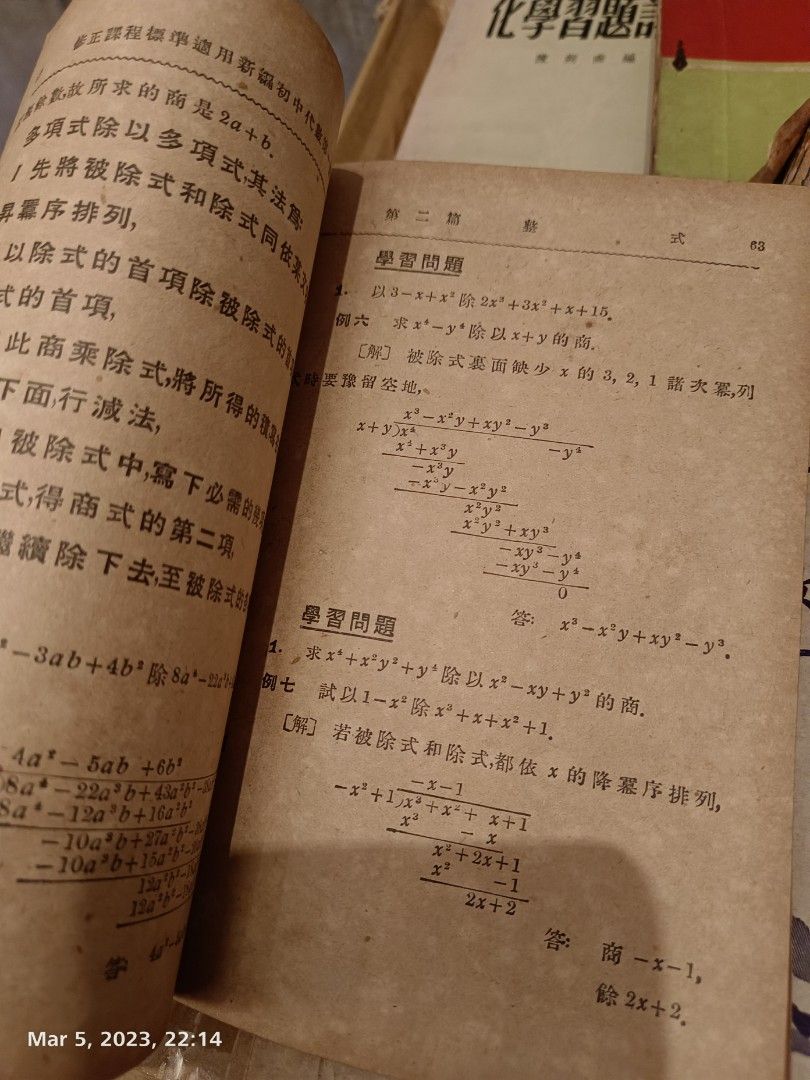 化學習題
修正課程標準適用新編初中代數
故所求的商是2a+b.
多項式除以多項式,其法爲:
1 先將被除式和除式同依某
冪序排列,
以除式的首項除被除式的
式的首項,
此商乘除式,將所得的積
下面,行減法,
被除式中,寫下必需的
式,得商式的第二項,
繼續除下去,至被除式的
-3ab+4b² 除 8a⁴-22a³
4a²-5ab +6b²
8a⁴-22a³b+43a²b²
8a⁴-12a³b+16a²b²
-10a³b+27a²b²
-10a³b+15a²b²
12a²b²
12a²b²
答:
第二篇 整式 63
學習問題
1. 以3-x+x²除2x³+3x²+x+15.
例六 求x⁴-y⁴除以x+y的商.
〔解〕 被除式裏面缺少 x 的 3, 2, 1 諸次冪,列
時要豫留空地,
x³-x²y+xy²-y³
x+y)x⁴ -y⁴
x⁴+x³y
-x³y
-x³y-x²y²
x²y²
x²y²+xy³
-xy³-y⁴
-xy³-y⁴
0
答: x³-x²y+xy²-y³.
學習問題
1. 求x⁴+x²y²+y⁴除以x²-xy+y²的商.
例七 試以1-x²除x³+x+x²+1.
〔解〕 若被除式和除式,都依 x 的降冪序排列,
-x-1
-x²+1)x³+x²+ x+1
x³ - x
x²+2x+1
x² -1
2x+2
答: 商 -x-1,
餘 2x+2.
Mar 5, 2023, 22:14